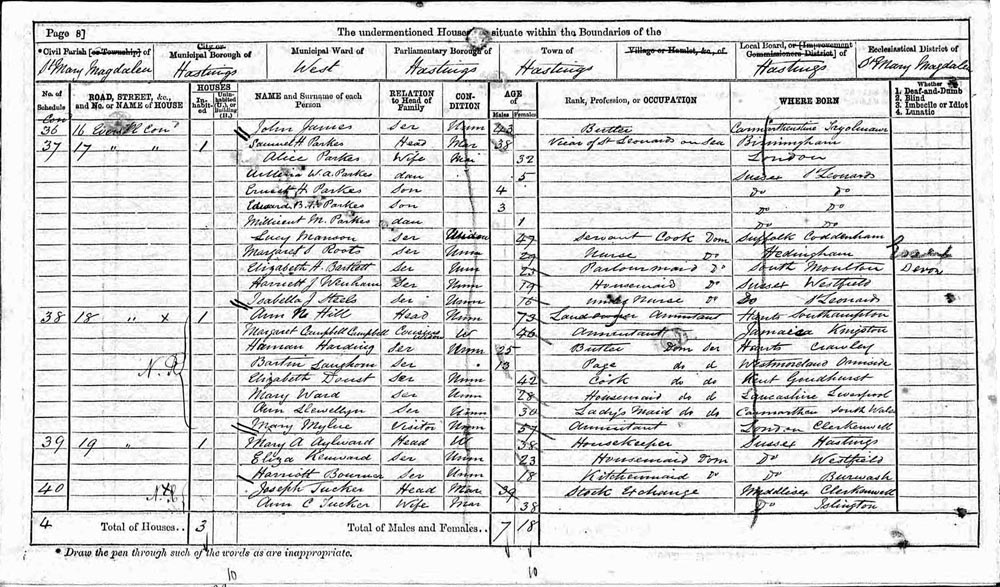 Page 8] The undermentioned Houses are situate within the Boundaries of the
*Civil Parish [or Township] of City or Municipal Borough of Municipal Ward of Parliamentary Borough of Town of Village or Hamlet, &c., of Local Board, or [Improvement Commissioners District] of Ecclesiastical District of
St Mary Magdalen Hastings West Hastings Hastings Hastings St Mary Magdalen
No. of Schedule ROAD, STREET, &c., and No. or NAME of HOUSE HOUSES Inhabited Uninhabited (U.), or Building (B.) NAME and Surname of each Person RELATION to Head of Family CONDITION AGE of Males Females Rank, Profession, or OCCUPATION WHERE BORN Whether 1. Deaf-and-Dumb 2. Blind 3. Imbecile or Idiot 4. Lunatic
36 16 John James Ser Unm 43 Butler
37 17 " " 1 Samuel H Parkes Head Mar 38 Vicar of St Leonards on Sea Birmingham
Alice Parkes Wife Mar 32 London
W. A. Parkes dau 5 Sussex St Leonards
Ernest H Parkes Son 4 Do Do
Edward B. Parkes Son 3 Do Do
Millicent M. Parkes dau 1 Do Do
Lucy Manson Ser 49 Servant Cook Dom Suffolk Coddenham
Margaret S Roots Ser Unm 29 Nurse Do Hedingham
Elizabeth H. Bartlett Ser Unm 23 Parlourmaid Do South Moulton Devon
Harriett J Wenham Ser Unm 19 Housemaid Do Sussex Westfield
Isabella J Steels Ser Unm 16 under Nurse Do Do St Leonards
38 18 " x 1 Ann Hill Head Unm 73 Annuitant Hants Southampton
Margaret Campbell Campbell Cousin W 46 Annuitant Jamaica Kingston
Haman Harding Ser Unm 25 Butler Dom Ser Hants Crawley
Langhorn Ser 13 Page do d Westmoreland Ormside
Elizabeth Doust Ser Unm 42 Cook do do Kent Goudhurst
Mary Ward Ser Unm 28 Housemaid do d Lancashire Liverpool
Ann Llewellyn Ser Unm 30 Lady's Maid do do Carmarthen South Wales
Mary Mylne Visitor Unm 57 Annuitant London Clerkenwell
39 19 " 1 Mary A Aylward Head W 38 Housekeeper Sussex Hastings
Eliza Kenward Ser Unm 23 Housemaid Dom Do Westfield
Harriott Bourner Ser Unm 18 Kitchenmaid Do Do Burwash
40 Joseph Tucker Head Mar 39 Stock Exchange Middlesex Clerkenwell
Ann C Tucker Wife Mar 38 Do Islington
4 Total of Houses.. 3 Total of Males and Females.. 7 18
* Draw the pen through such of the words as are inappropriate.
10 10